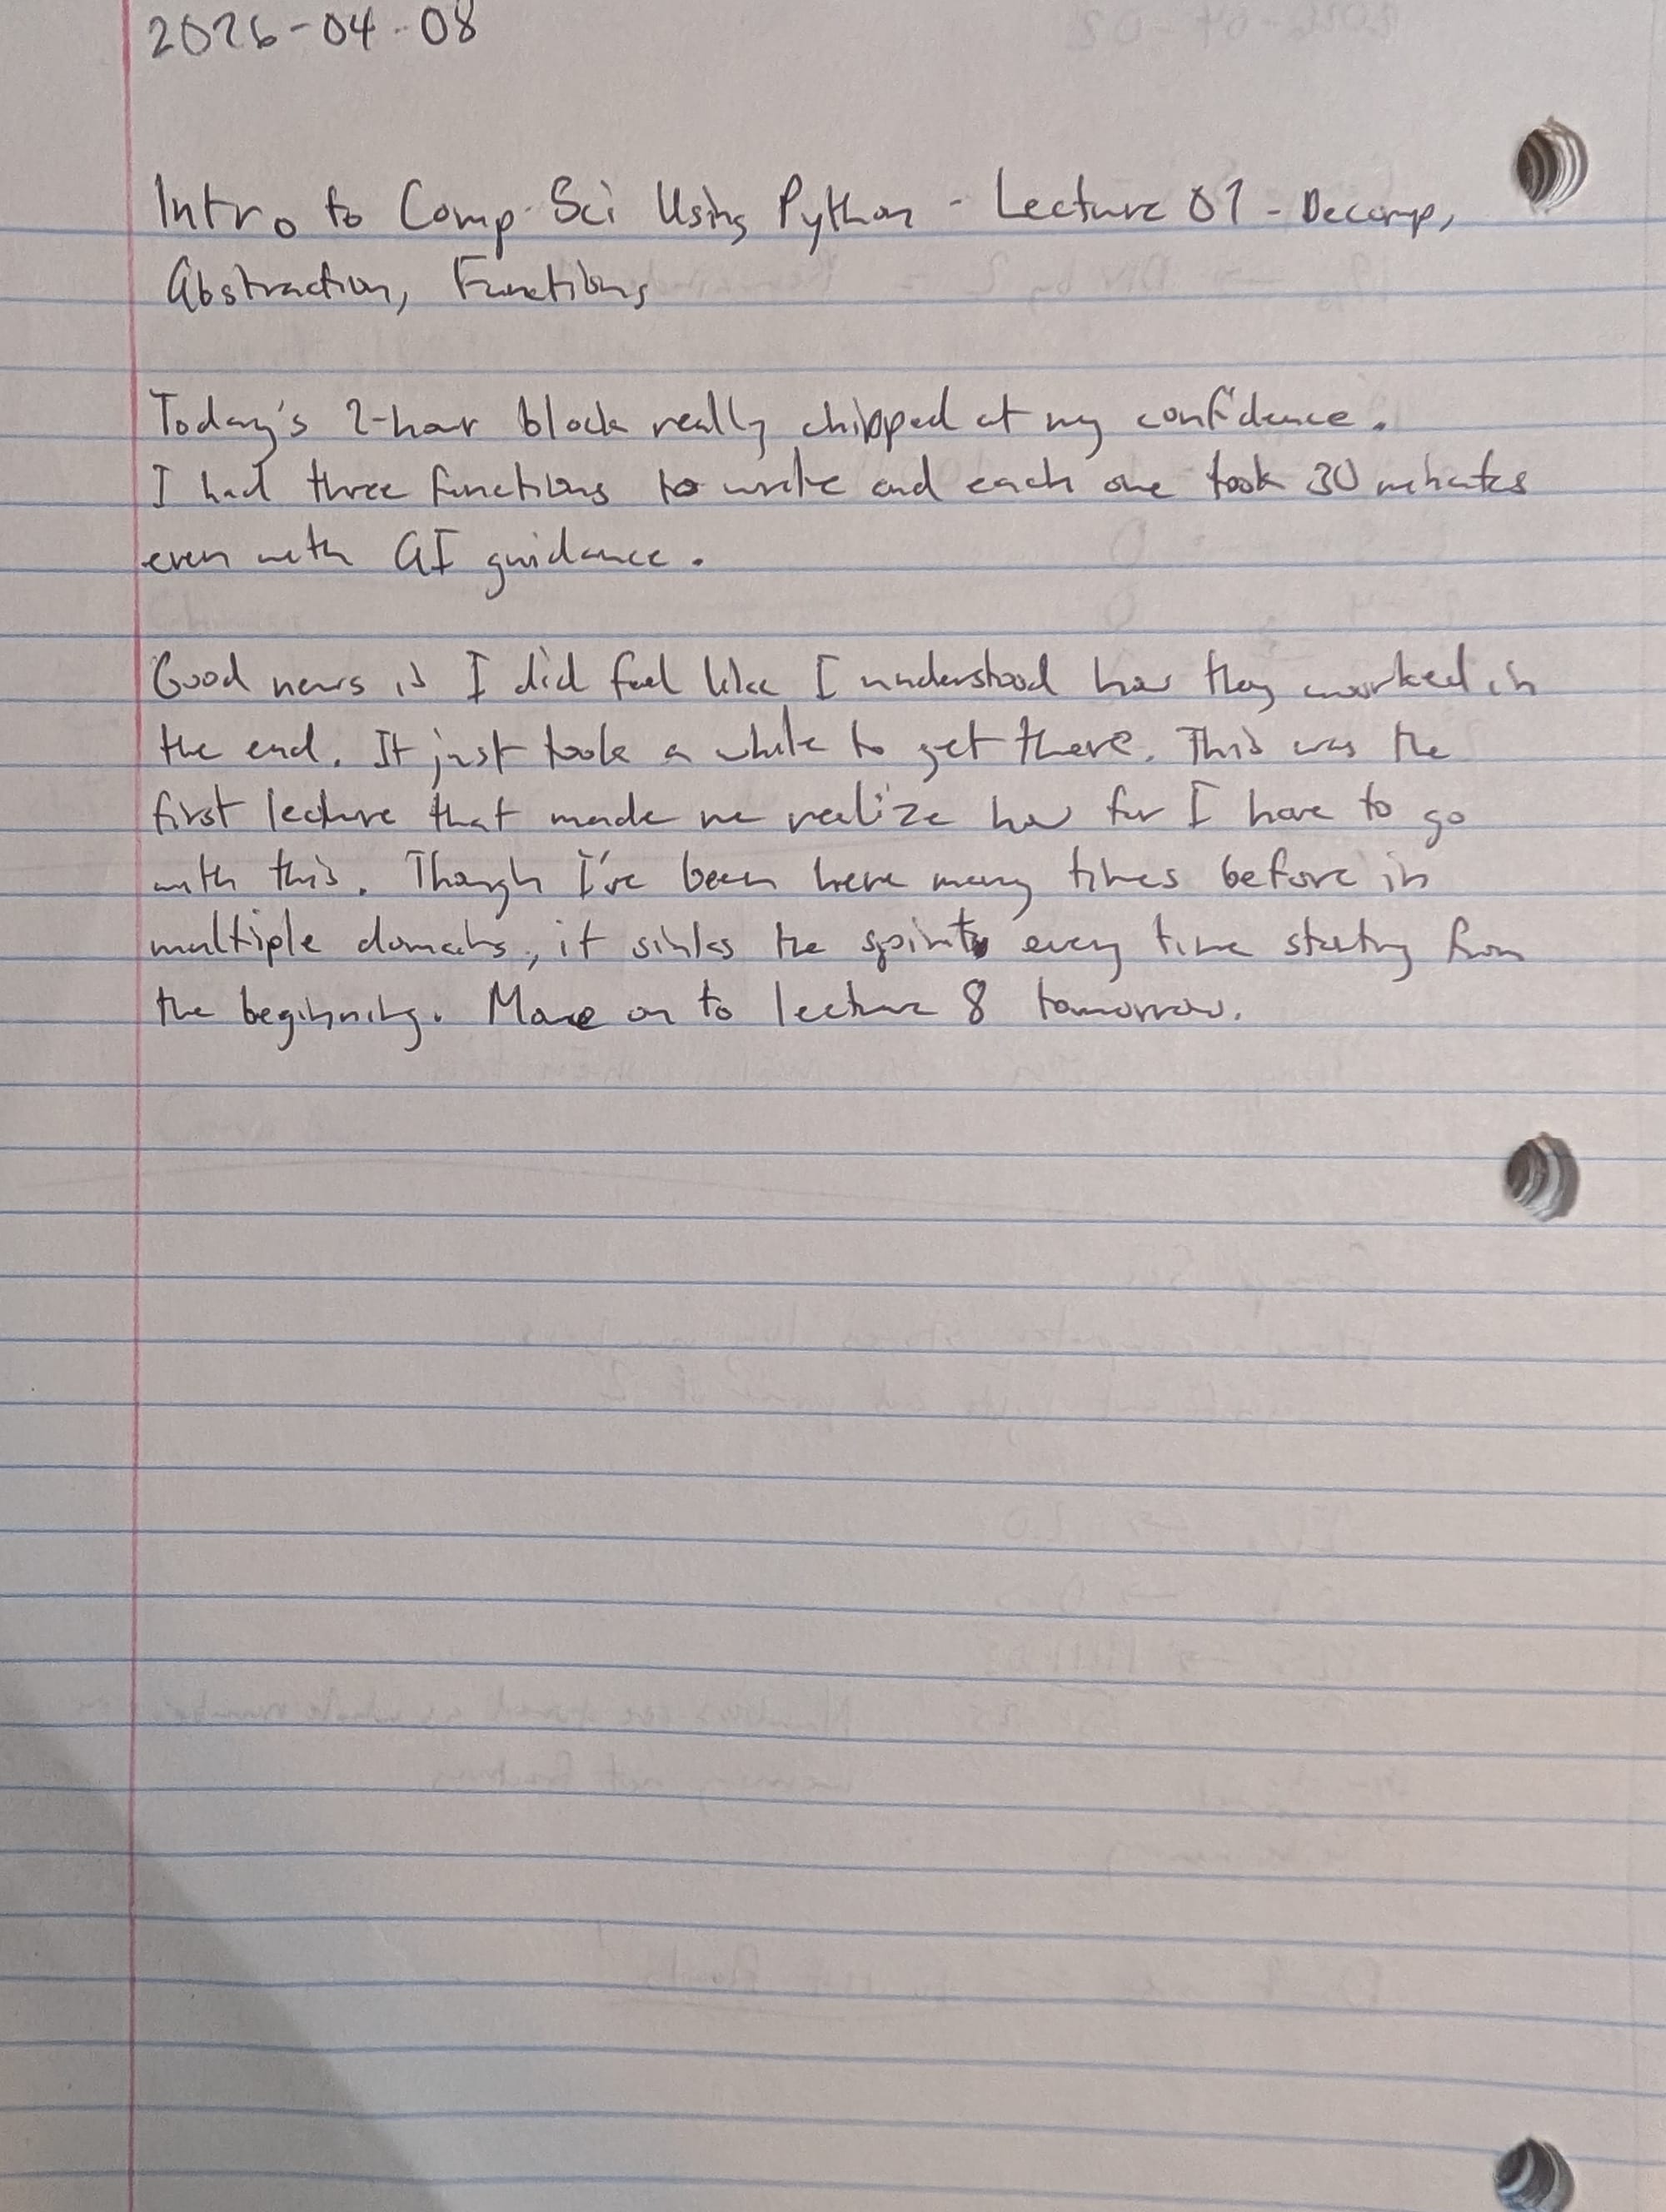 2026-04-08
Intro to Comp Sci Using Python - Lecture 07 - Decomp,
Abstraction, Functions
Today's 2-hour block really chipped at my confidence.
I had three functions to write and each one took 30 minutes
even with AI guidance.
Good news is I did feel like I understood how they worked in
the end. It just took a while to get there. This was the
first lecture that made me realize how far I have to go
with this. Though I've been here many times before in
multiple domains, it sinks the spirits every time starting from
the beginning. Move on to lecture 8 tomorrow.